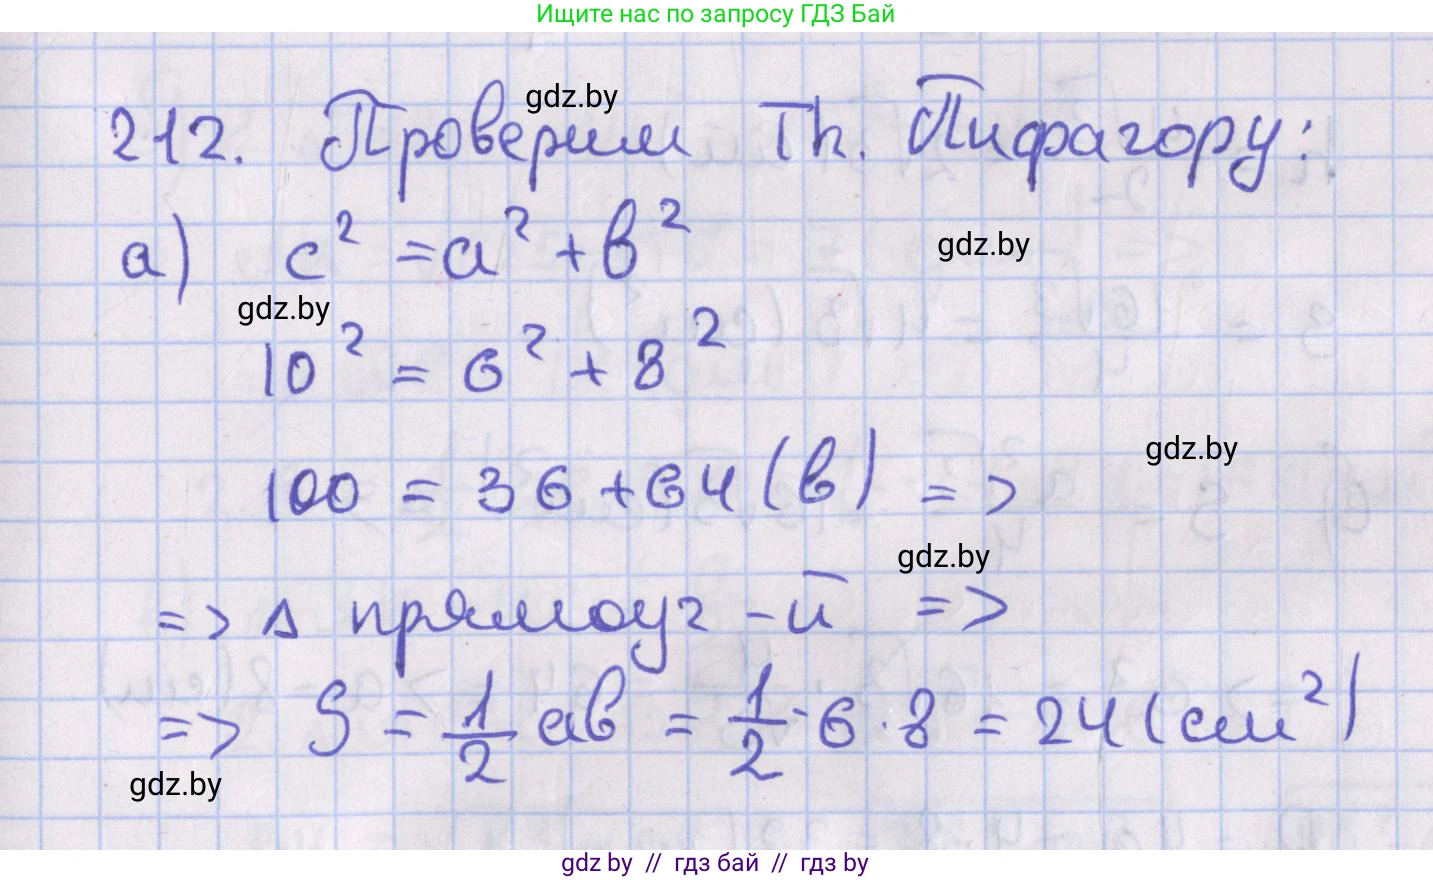 Ищите нас по запросу ГДЗ Бай
212. Проверим Th. Пифагору:
gdz.by
а) c² = a² + b²
gdz.by
gdz.by
10² = 6² + 8²
100 = 36 + 64 (в) =>
gdz.by
gdz.by
=> Δ прямоуг-й =>
=> S = 1/2 ab = 1/2 · 6 · 8 = 24 (см²)
gdz.by
gdz by // гдз бай // гдз by